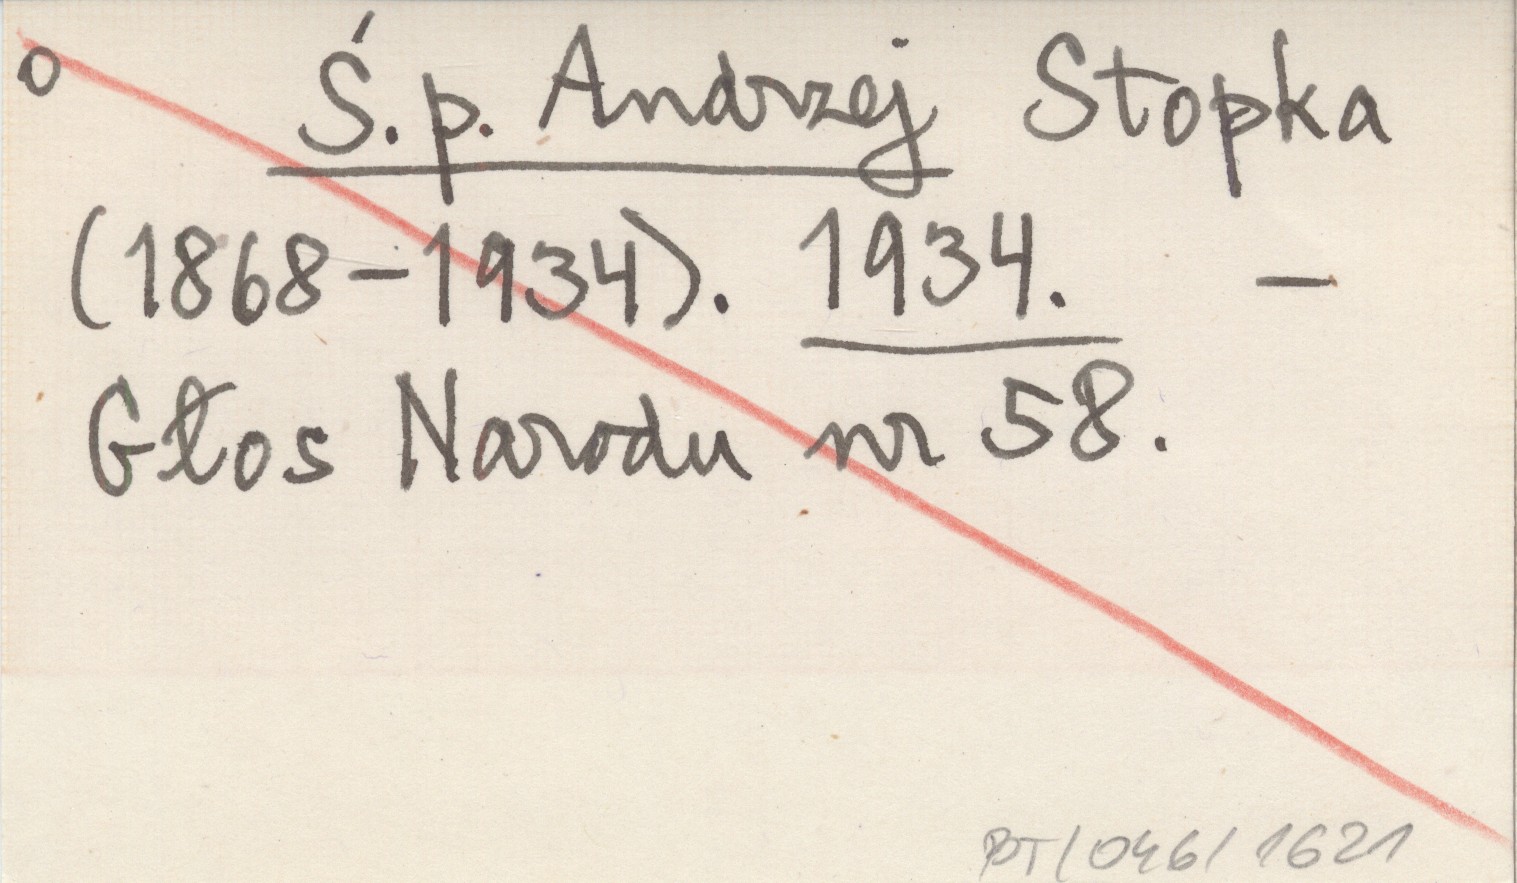 o Ś.p. Andrzej Stopka
(1868-1934). 1934. –
Głos Narodu nr 58.
PT/046/1621